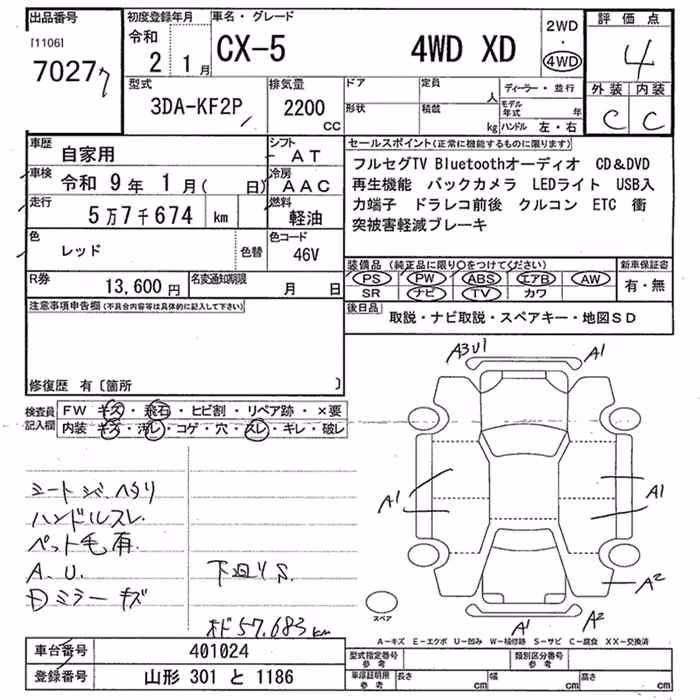 出品番号
[1106]
7027
初度登録年月
令和
2 1月
車名・グレード
CX-5 4WD XD
2WD
・
4WD
評価点
4
外装 内装
C C
型式
3DA-KF2P
排気量
2200
CC
ドア
形状
定員
人
積載
kg
ディーラー・並行
モデル年式 年
ハンドル 左・右
車歴
自家用
シフト
AT
車検
令和 9年 1月( 日)
冷房
AAC
走行
5万7千674 km
燃料
軽油
色
レッド
色替
色コード
46V
R券
13,600円
名変通知期限
月 日
セールスポイント(正常に機能するものに限ります)
フルセグTV Bluetoothオーディオ CD&DVD
再生機能 バックカメラ LEDライト USB入
力端子 ドラレコ前後 クルコン ETC 衝
突被害軽減ブレーキ
装備品(純正品に限り○をつけてください)
PS PW ABS エアB AW
SR ナビ TV カワ
新車保証書
有・無
後日品
取説・ナビ取説・スペアキー・地図SD
注意事項申告欄(不具合内容等は具体的に記入して下さい)
修復歴 有〔箇所 〕
検査員
記入欄
FW キズ・飛石・ヒビ割・リペア跡・×要
内装 キズ・汚レ・コゲ・穴・スレ・キレ・破レ
シートシバ.ヘタリ
ハンドルスレ
ペット毛有
A.U.
ミラーキズ
下回りS
オド57.683km
A3U1
A1
A1
A1
A2
A1
A2
スペア
A-キズ E-エクボ U-凹み W-補修跡 S-サビ C-腐食 XX-交換済
車台番号
401024
登録番号
山形 301 と 1186
型式指定番号
参考
類別区分番号
参考
車庫証明用
参考
長さ cm
幅 cm
高さ cm